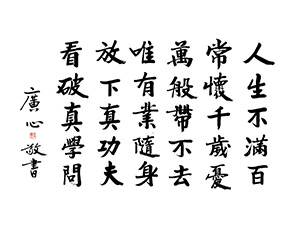 人生不滿百
常懷千歲憂
萬般帶不去
唯有業隨身
放下真功夫
看破真學問
廣心敬書